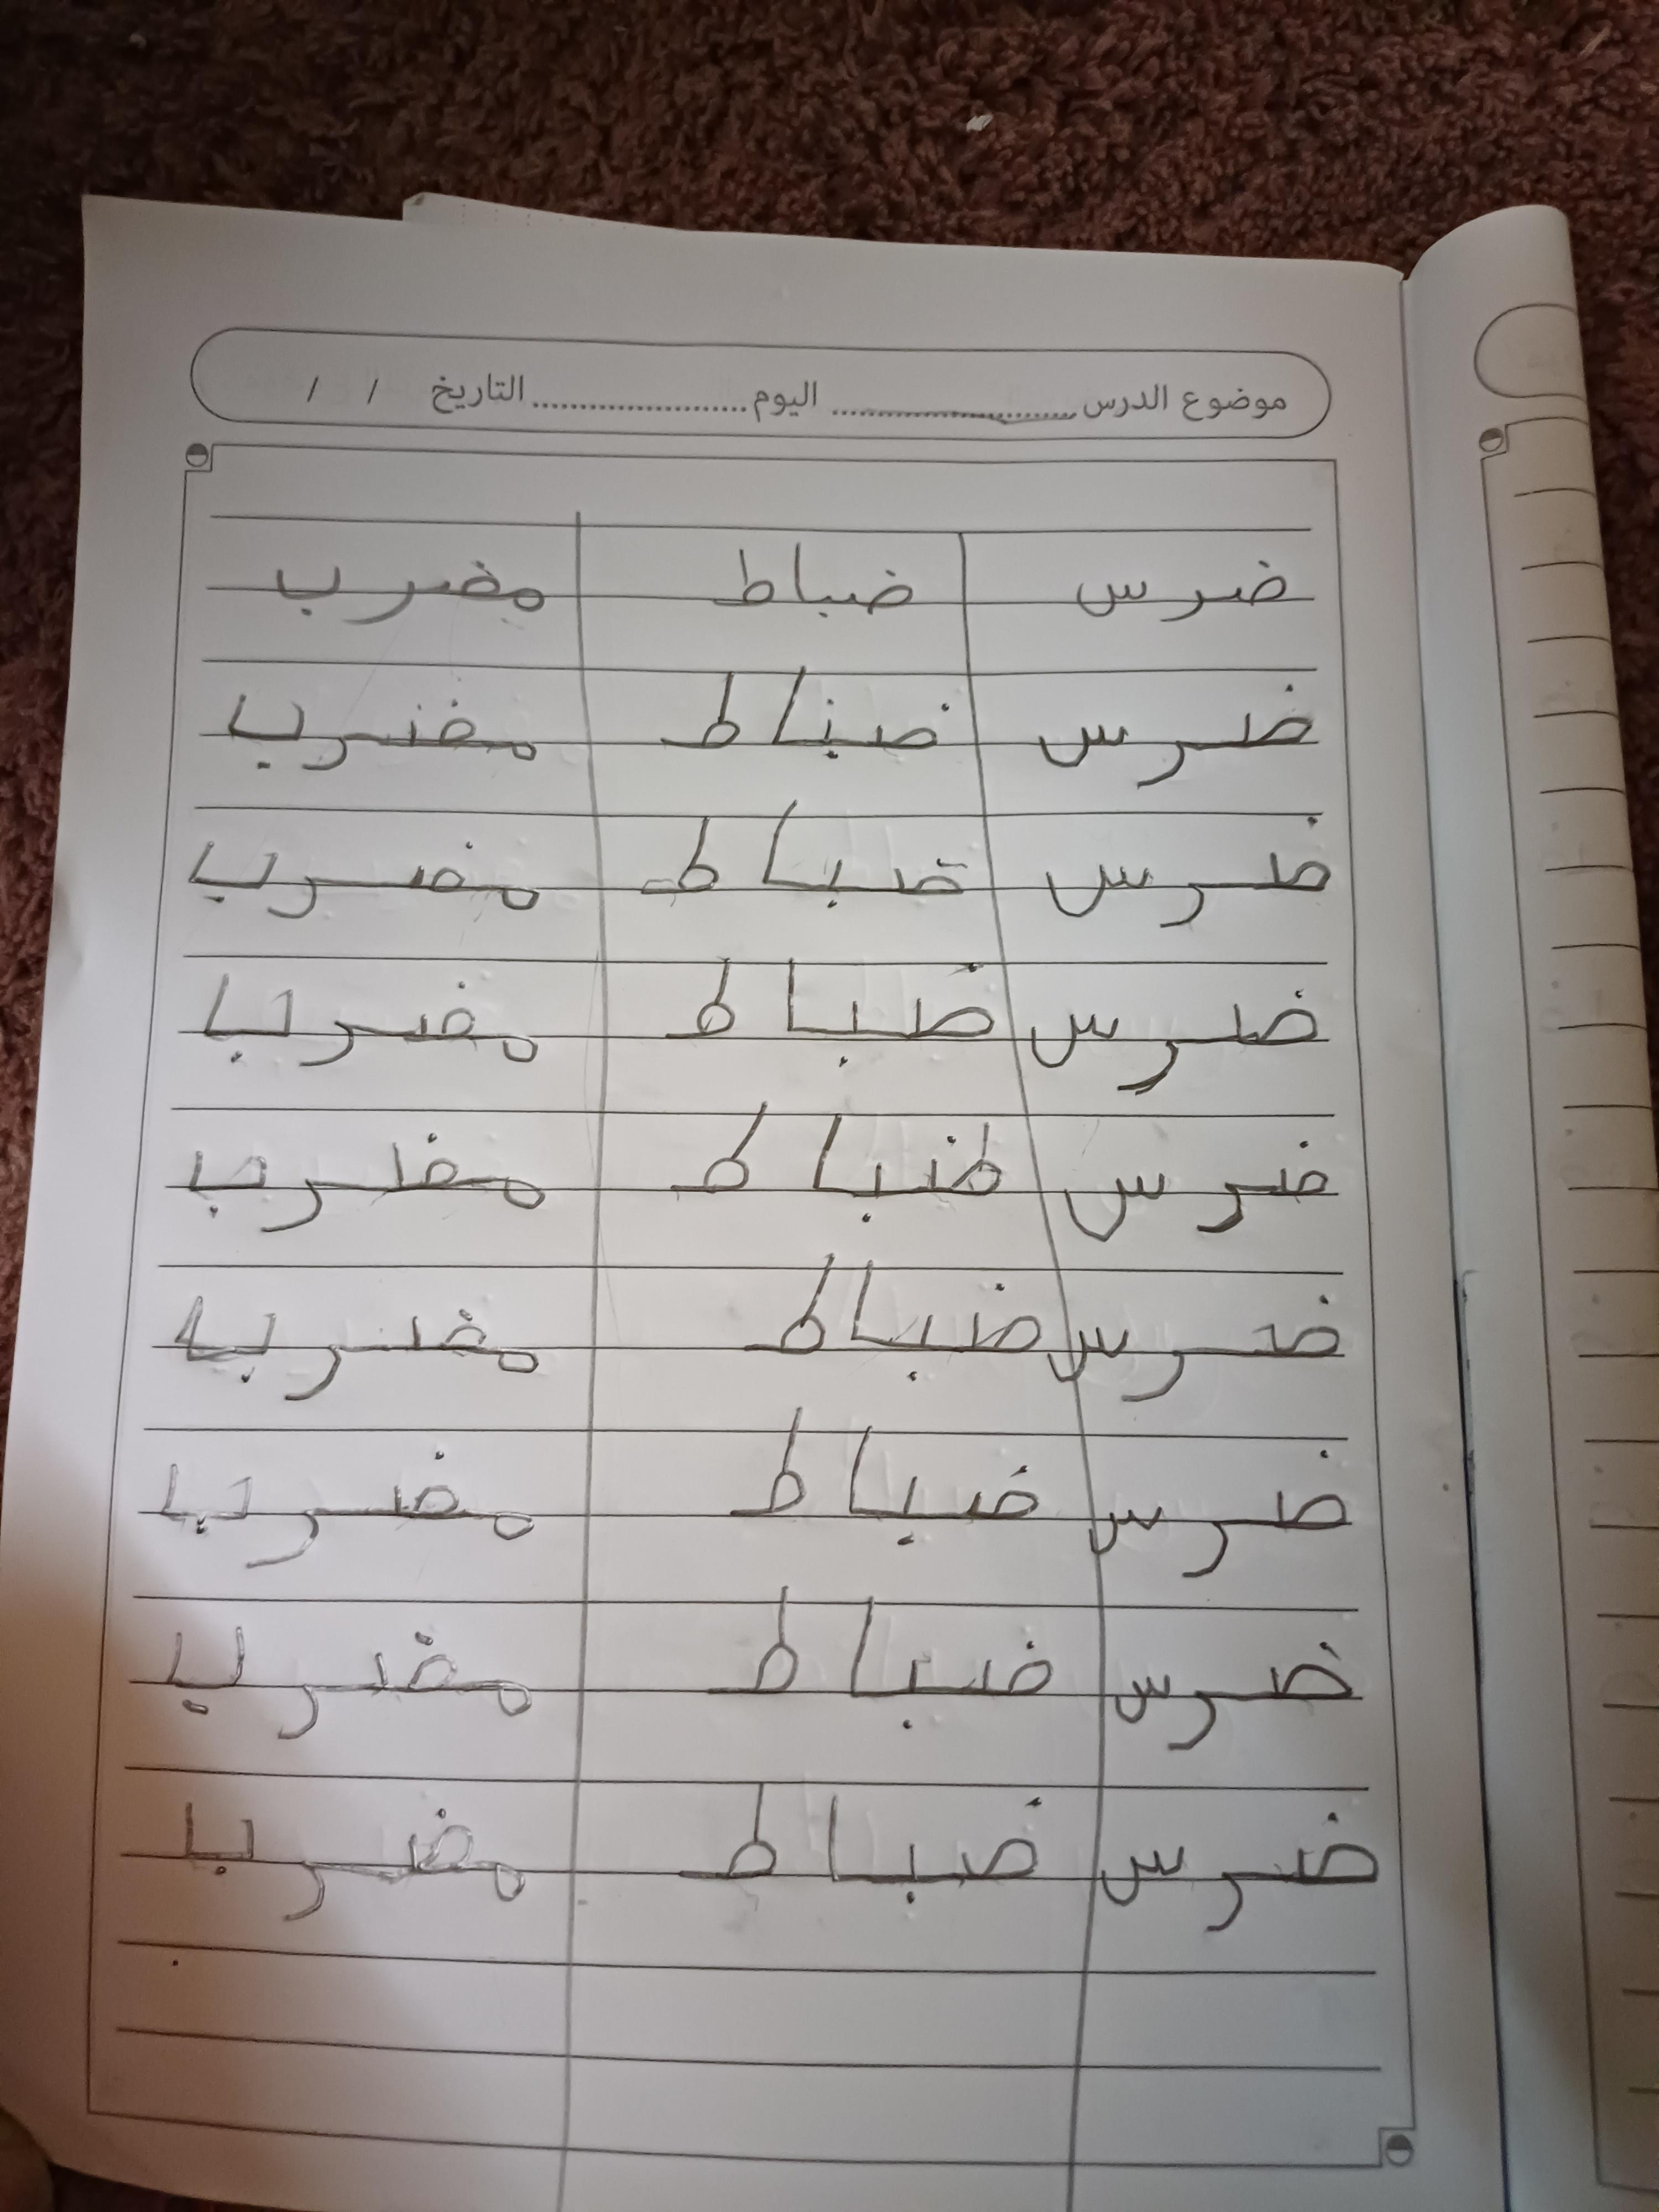 موضوع الدرس ........................ اليوم ...................... التاريخ / /
ضرس ضباط مضرب
ضرس ضباط مضرب
ضرس ضباط مضرب
ضرس ضباط مضرب
ضرس ضباط مضرب
ضرس ضباط مضرب
ضرس ضباط مضرب
ضرس ضباط مضرب
ضرس ضباط مضرب